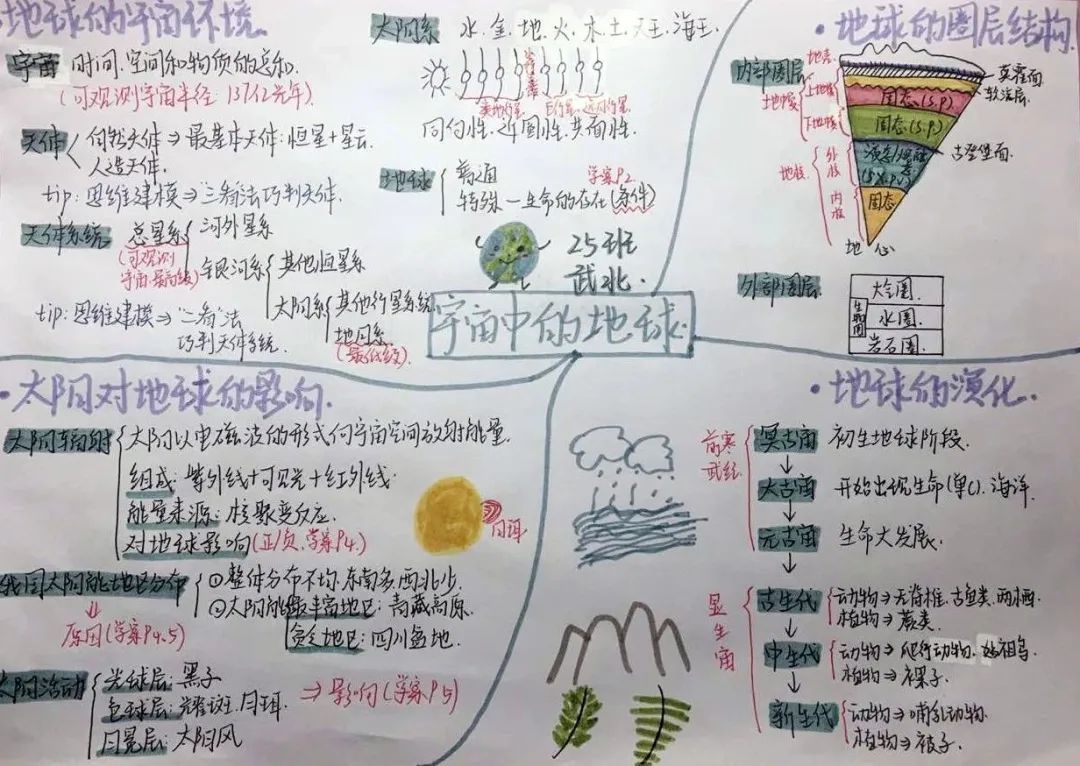 地球的宇宙环境.
宇宙 时间、空间和物质的总和.
(可观测宇宙半径: 137亿光年).
天体
自然天体⇒最基本天体: 恒星+星云.
人造天体.
tip: 思维建模⇒"三看"法巧判天体.
天体系统
总星系
(可观测宇宙.最高级)
河外星系
银河系
其他恒星系
太阳系
其他行星系统
地月系
(最低级)
tip: 思维建模⇒"二看"法
巧判天体系统.
太阳系 水.金.地.火.木.土.天王.海王.
小行星带
类地行星 巨行星 远日行星
同向性.近圆性.共面性.
地球
普通
特殊—生命的存在(条件)
学案P2
25班
武北.
宇宙中的地球.
·地球的圈层结构.
内部圈层
地壳
上地幔
地幔
下地幔
地核
外核
内核
莫霍面
软流层.
固态(S.P.)
固态(S.P.)
古登堡面.
固态
地心
外部圈层
大气圈.
生物圈
水圈.
岩石圈.
·太阳对地球的影响.
太阳辐射
太阳以电磁波的形式向宇宙空间放射能量.
组成: 紫外线+可见光+红外线.
能量来源: 核聚变反应.
对地球影响(正/负,学案P4.)
日珥
我国太阳能地区分布
①整体分布不均.东南多,西北少.
②太阳能最丰富地区: 青藏高原.
贫乏地区: 四川盆地.
原因(学案P4.5)
太阳活动
光球层: 黑子
色球层: 耀斑.日珥.
日冕层: 太阳风
⇒影响(学案P5)
·地球的演化.
前寒武纪
冥古宙 初生地球阶段.
太古宙 开始出现生命(单C).海洋.
元古宙 生命大发展.
显生宙
古生代
动物⇒无脊椎.古鱼类.两栖.
植物⇒蕨类.
中生代
动物⇒爬行动物.始祖鸟
植物⇒裸子.
新生代
动物⇒哺乳动物.
植物⇒被子.